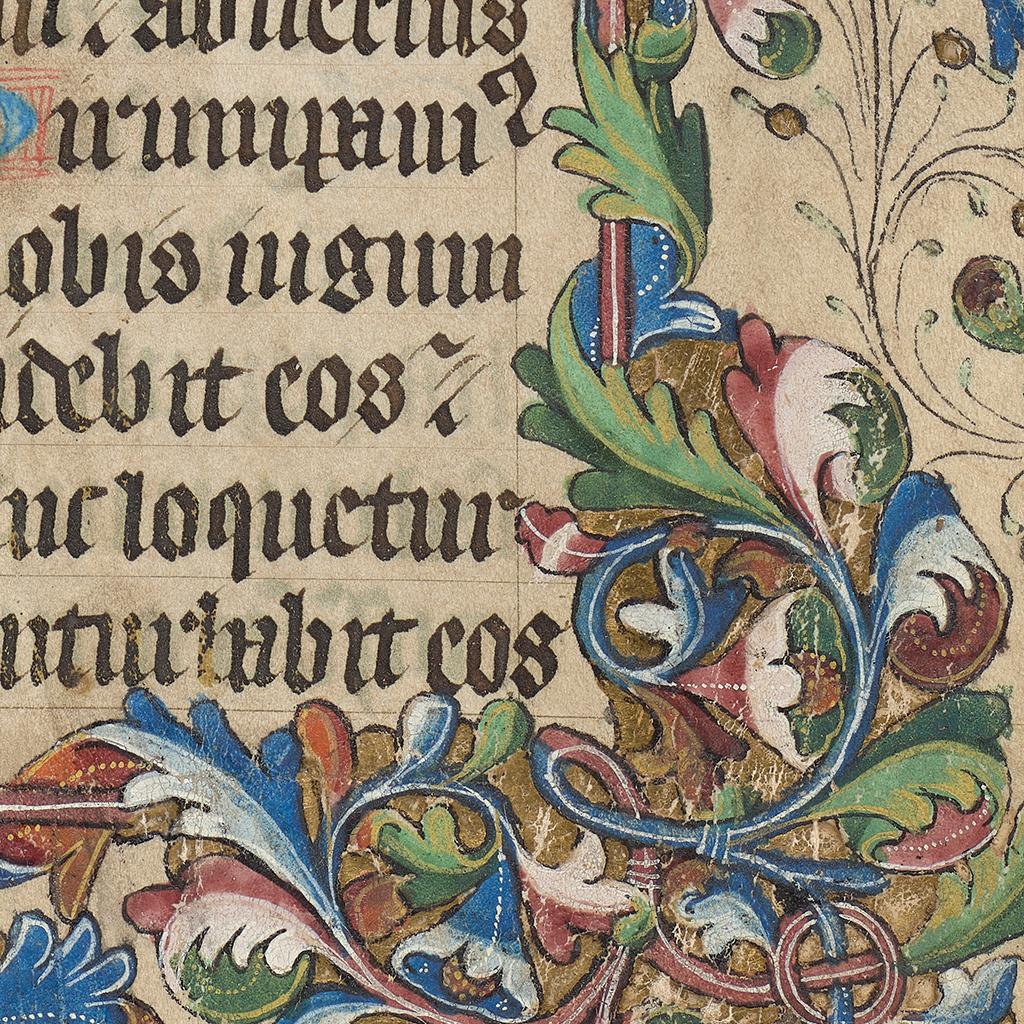 aduersus
irumpamꝰ
obis iugum
idebit eos
nc loquetur
nturbabit eos